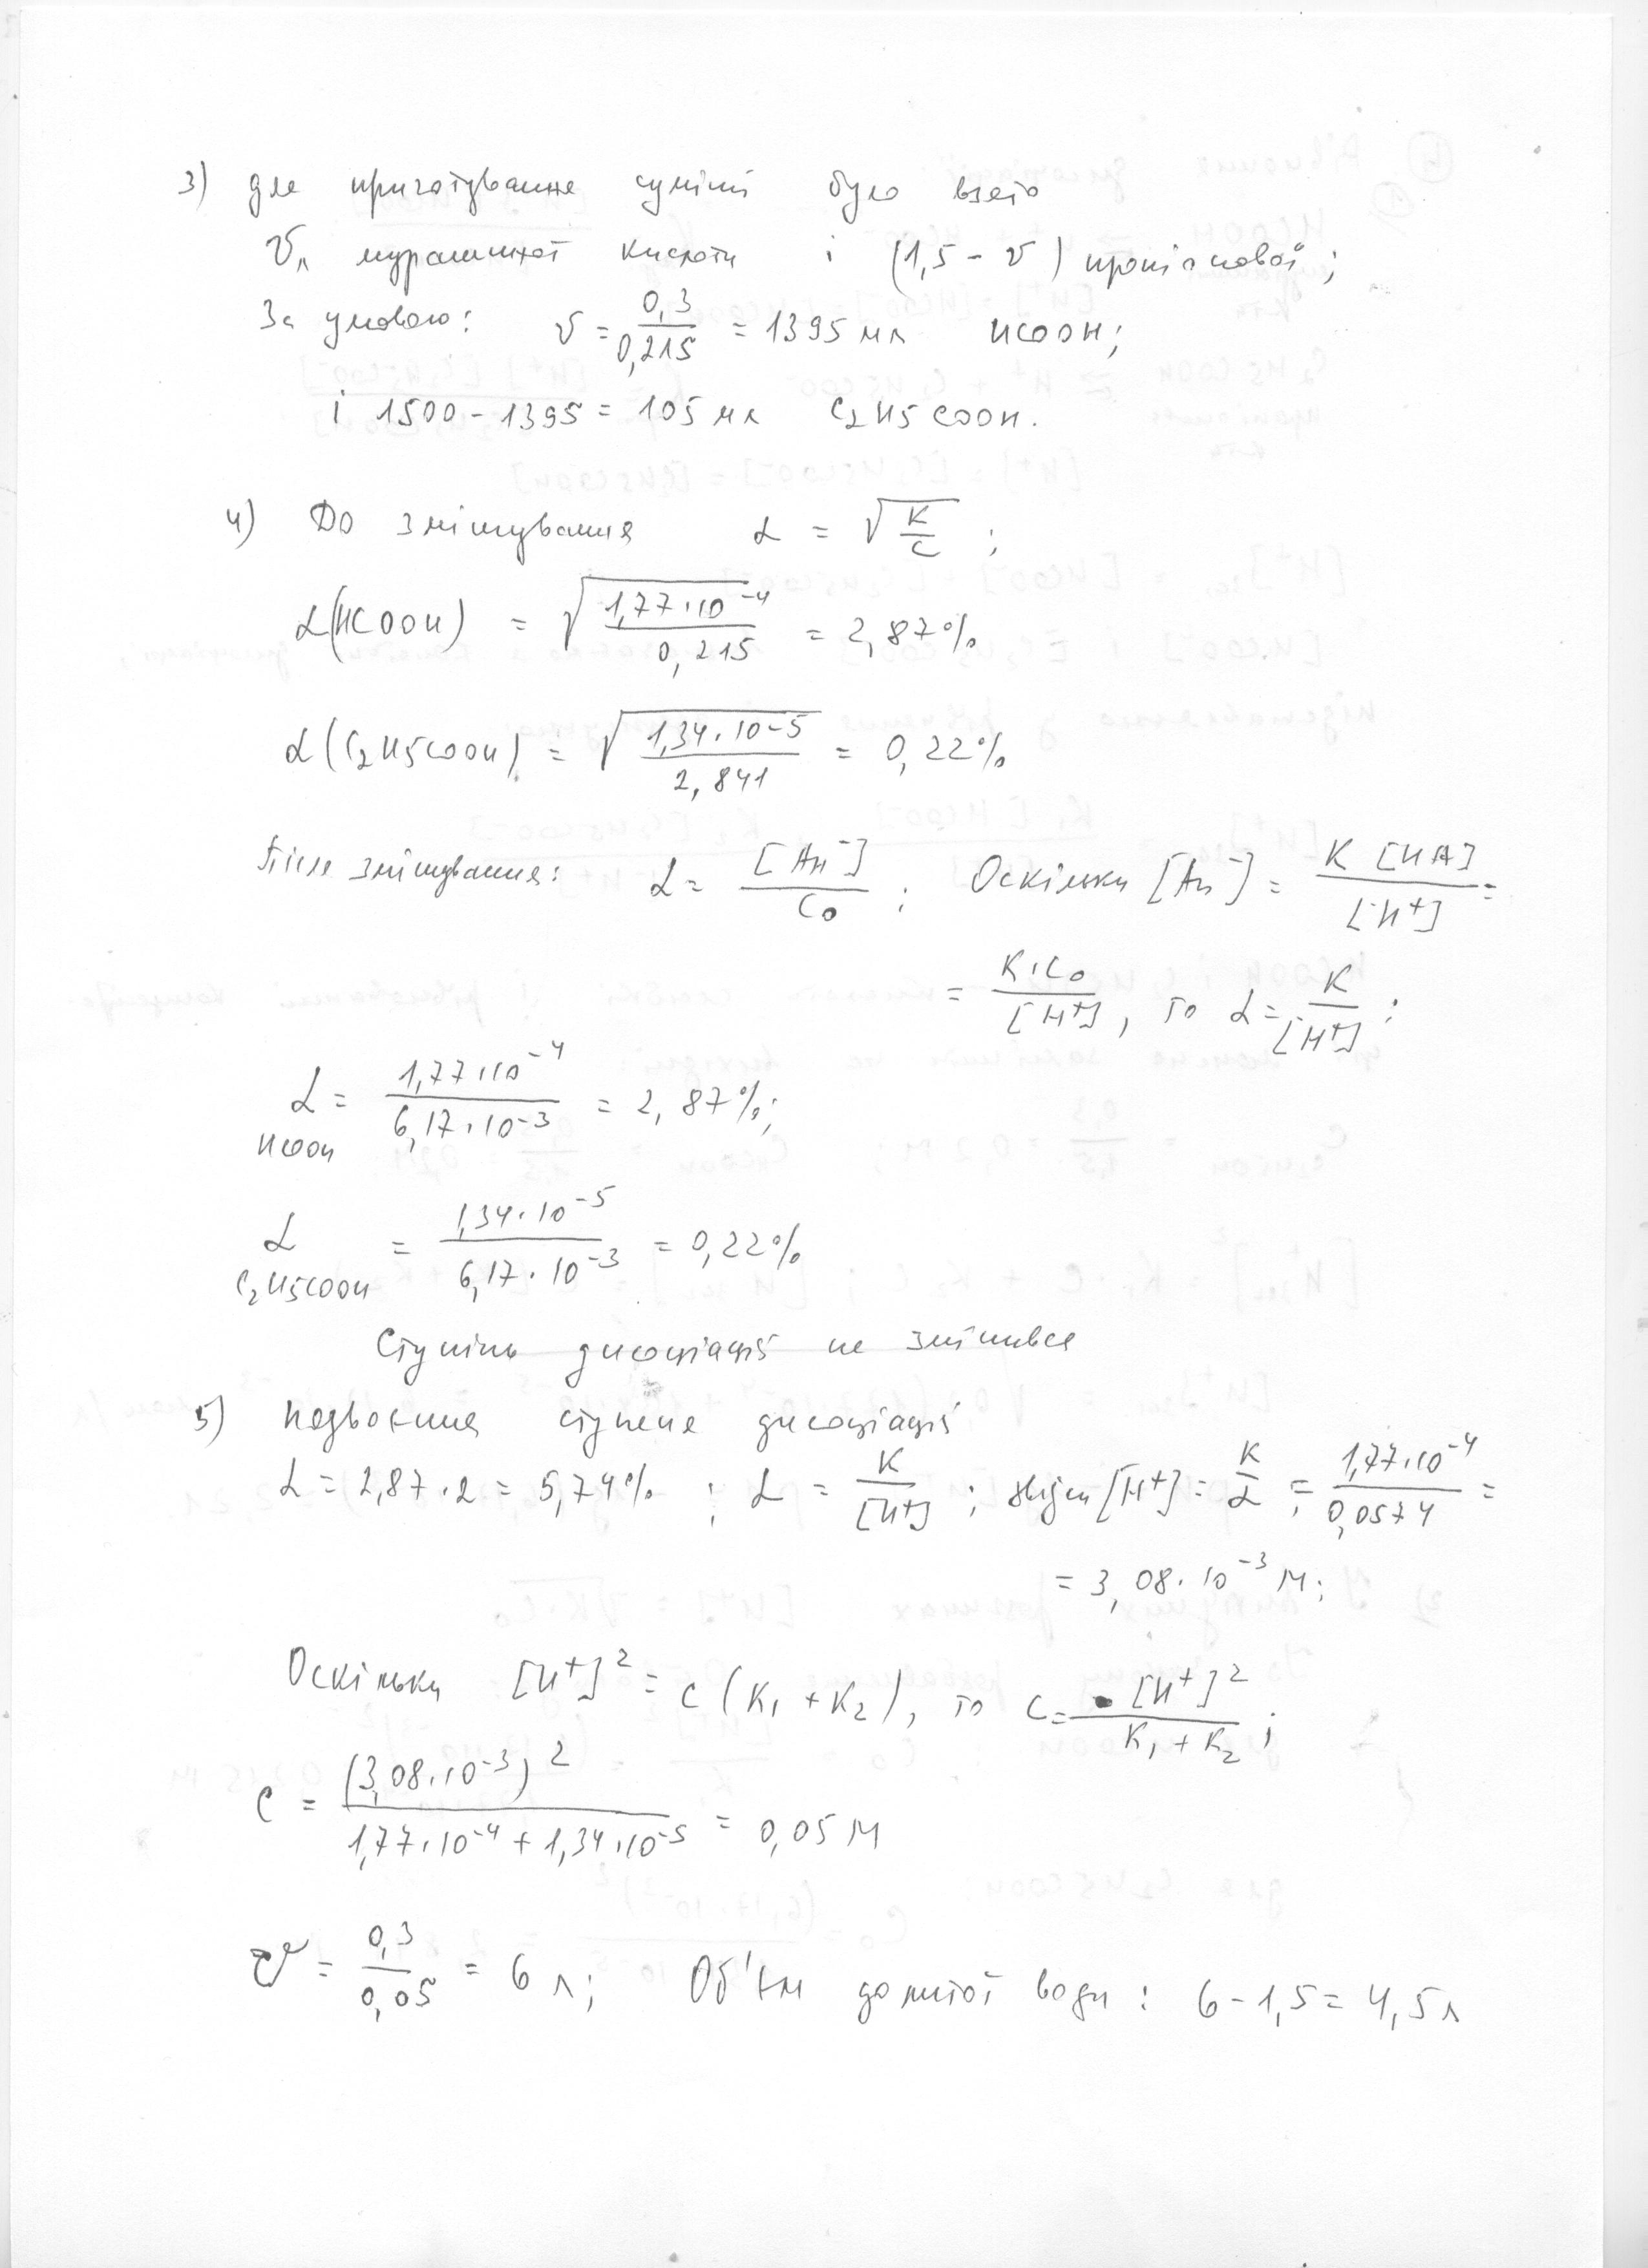 3) для приготування суміші було взято
V л мурашиної кислоти і (1,5 - V) пропіонової;
За умовою: V = 0,3/0,215 = 1395 мл HCOOH;
і 1500 - 1395 = 105 мл C2H5COOH.
4) До змішування α = √(K/C);
α(HCOOH) = √(1,77·10^-4/0,215) = 2,87%
α(C2H5COOH) = √(1,34·10^-5/2,841) = 0,22%
Після змішування: α = [An^-]/C0; Оскільки [An^-] = K[HA]/[H^+] =
= K·C0/[H^+], то α = K/[H^+];
α HCOOH = 1,77·10^-4/6,17·10^-3 = 2,87%;
α C2H5COOH = 1,34·10^-5/6,17·10^-3 = 0,22%
Ступінь дисоціації не змінився
5) Подвоєння ступеня дисоціації
α = 2,87·2 = 5,74%; α = K/[H^+]; звідси [H^+] = K/α = 1,77·10^-4/0,0574 =
= 3,08·10^-3 M;
Оскільки [H^+]^2 = C(K1 + K2), то C = [H^+]^2/K1 + K2;
C = (3,08·10^-3)^2/1,77·10^-4 + 1,34·10^-5 = 0,05 M
V = 0,3/0,05 = 6 л; Об'єм долитої води: 6 - 1,5 = 4,5 л